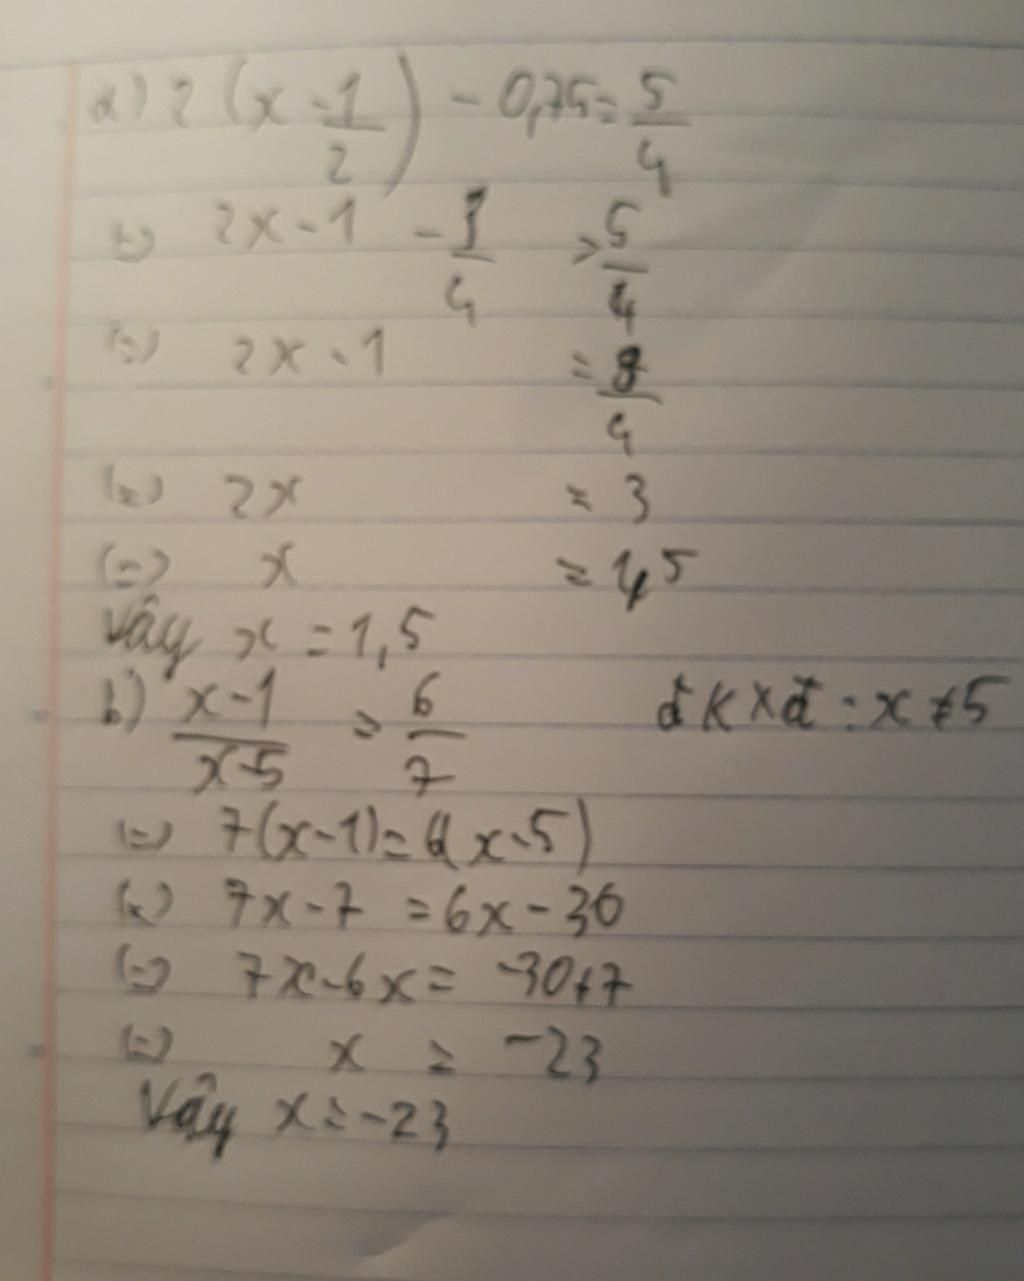 a) 2(x - 1/2) - 0,75 = 5/4
<=> 2x - 1 - 3/4 = 5/4
<=> 2x - 1 = 8/4
<=> 2x = 3
<=> x = 1,5
Vậy x = 1,5
b) x-1/x-5 = 6/7 đkxđ : x ≠ 5
<=> 7(x-1) = 6(x-5)
<=> 7x - 7 = 6x - 30
<=> 7x - 6x = -30+7
<=> x = -23
Vậy x = -23